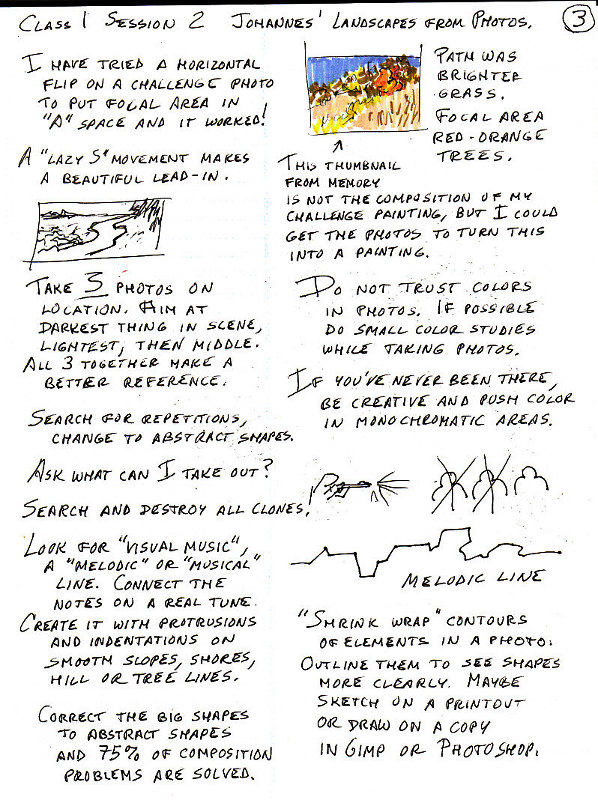 Class 1 Session 2 Johannes' Landscapes from Photos.
3
I have tried a horizontal
flip on a challenge photo
to put focal area in
"A" space and it worked!
A "lazy S" movement makes
a beautiful lead-in.
Take 3 photos on
location. Aim at
darkest thing in scene,
lightest, then middle.
All 3 together make a
better reference.
Search for repetitions,
change to abstract shapes.
Ask what can I take out?
Search and destroy all clones.
Look for "visual music",
a "melodic" or "musical"
line. Connect the
notes on a real tune.
Create it with protrusions
and indentations on
smooth slopes, shores,
hill or tree lines.
Correct the big shapes
to abstract shapes
and 75% of composition
problems are solved.
Path was
brighter
grass.
Focal area
red-orange
trees.
This thumbnail
from memory
is not the composition of my
challenge painting, but I could
get the photos to turn this
into a painting.
Do not trust colors
in photos. If possible
do small color studies
while taking photos.
If you've never been there,
be creative and push color
in monochromatic areas.
Melodic line
"Shrink wrap" contours
of elements in a photo.
Outline them to see shapes
more clearly. Maybe
sketch on a printout
or draw on a copy
in Gimp or Photoshop.